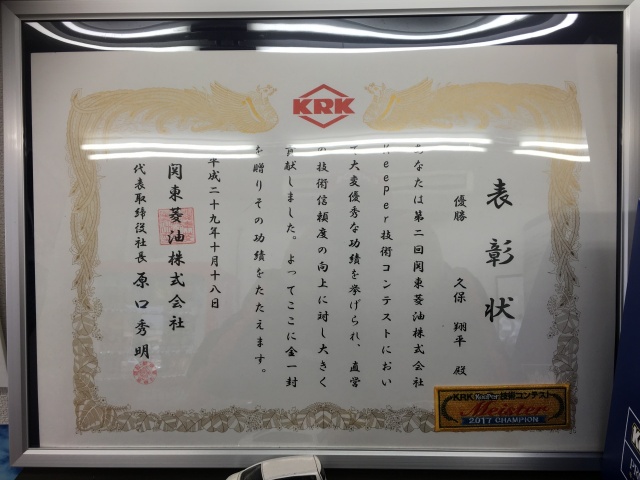 KRK
表彰状
優勝 久保 翔平 殿
あなたは第二回関東菱油株式会社
Keeper技術コンテストにおい
て大変優秀な功績を挙げられ、直営
の技術信頼度の向上に対し大きく
貢献しました。よってここに金一封
を贈りその功績をたたえます。
平成二十九年十月十八日
関東菱油株式会社
代表取締役社長 原口秀明
KRK KeePer技術コンテスト
Meister
2017 CHAMPION